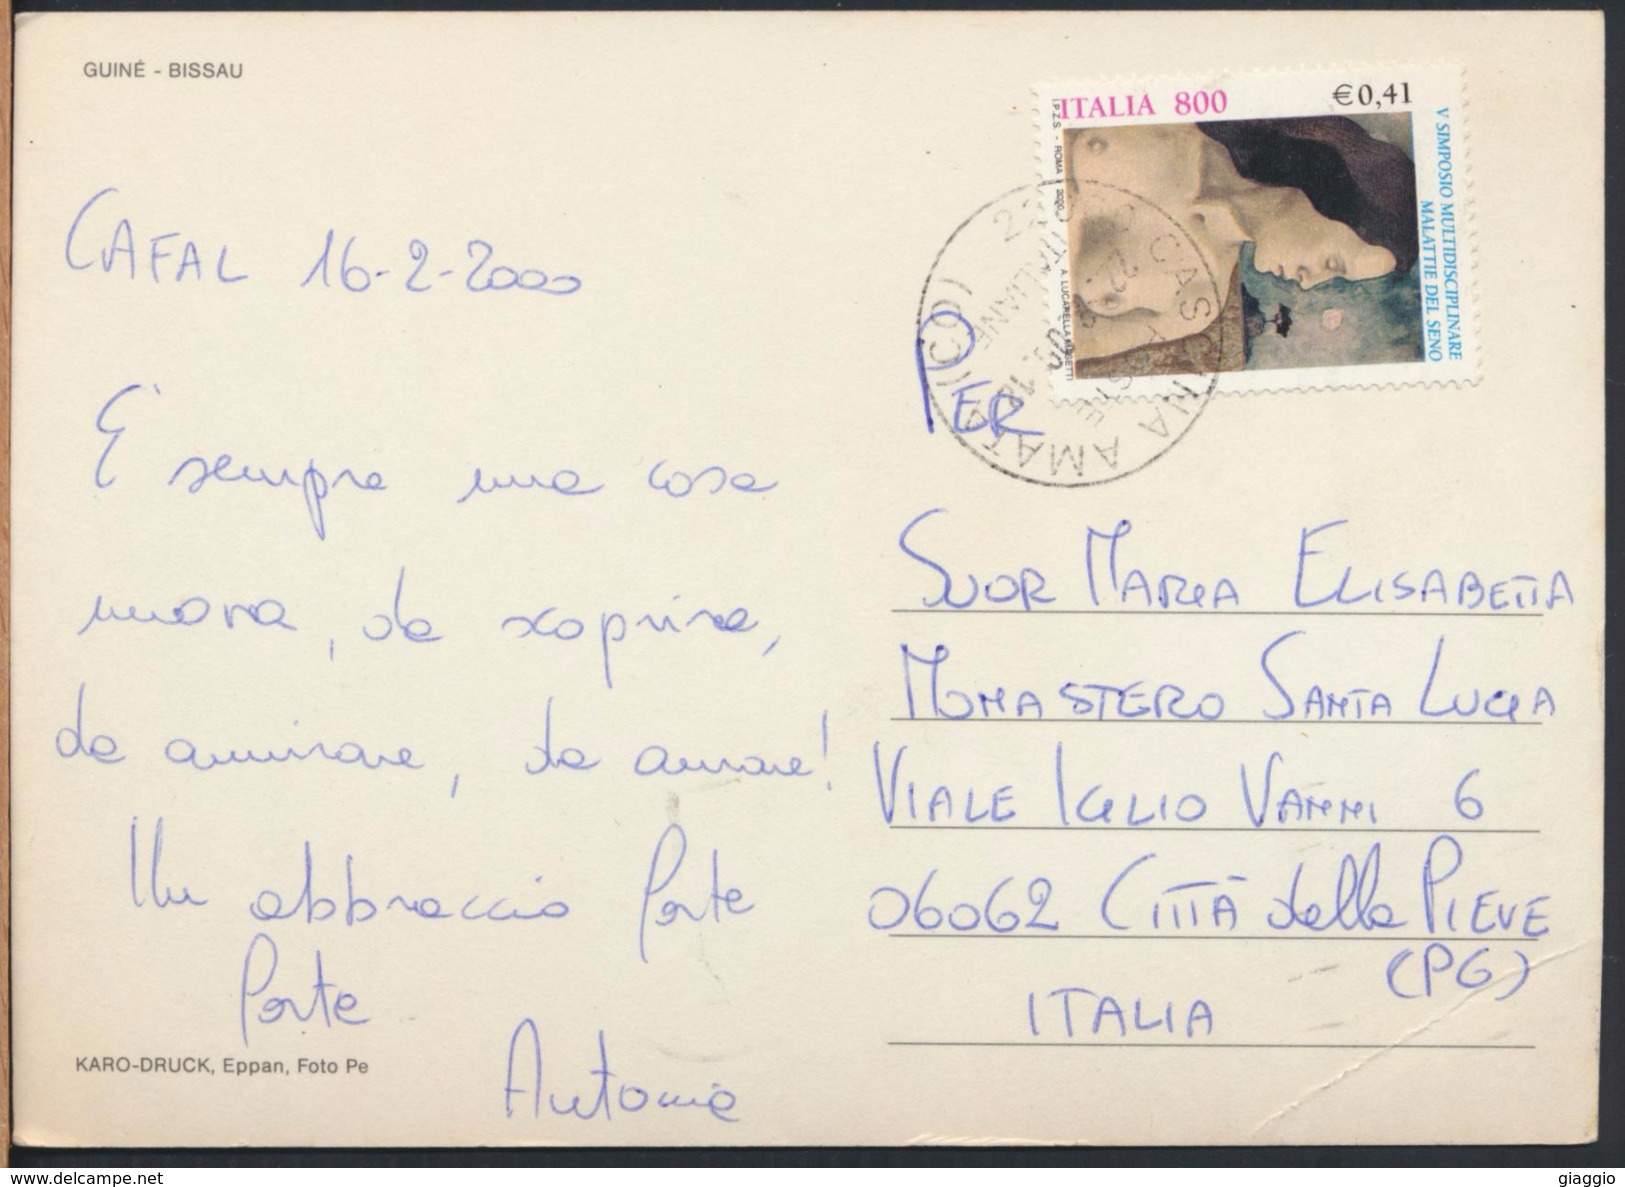 GUINÉ - BISSAU
CAFAL 16-2-2000
E' sempre una cosa
nuova, da scoprire,
da ammirare, da amare!
Un abbraccio forte
forte
Antonia
KARO-DRUCK, Eppan, Foto Pe
ITALIA 800 €0,41
V SIMPOSIO MULTIDISCIPLINARE
MALATTIE DEL SENO
I.P.Z.S. - ROMA 2000
CASCINA AMATA (CO)
POSTE ITALIANE
PER
SUOR MARIA ELISABETTA
MONASTERO SANTA LUCIA
VIALE IGLIO VANNI 6
06062 CITTÀ della PIEVE
(PG)
ITALIA
giaggio